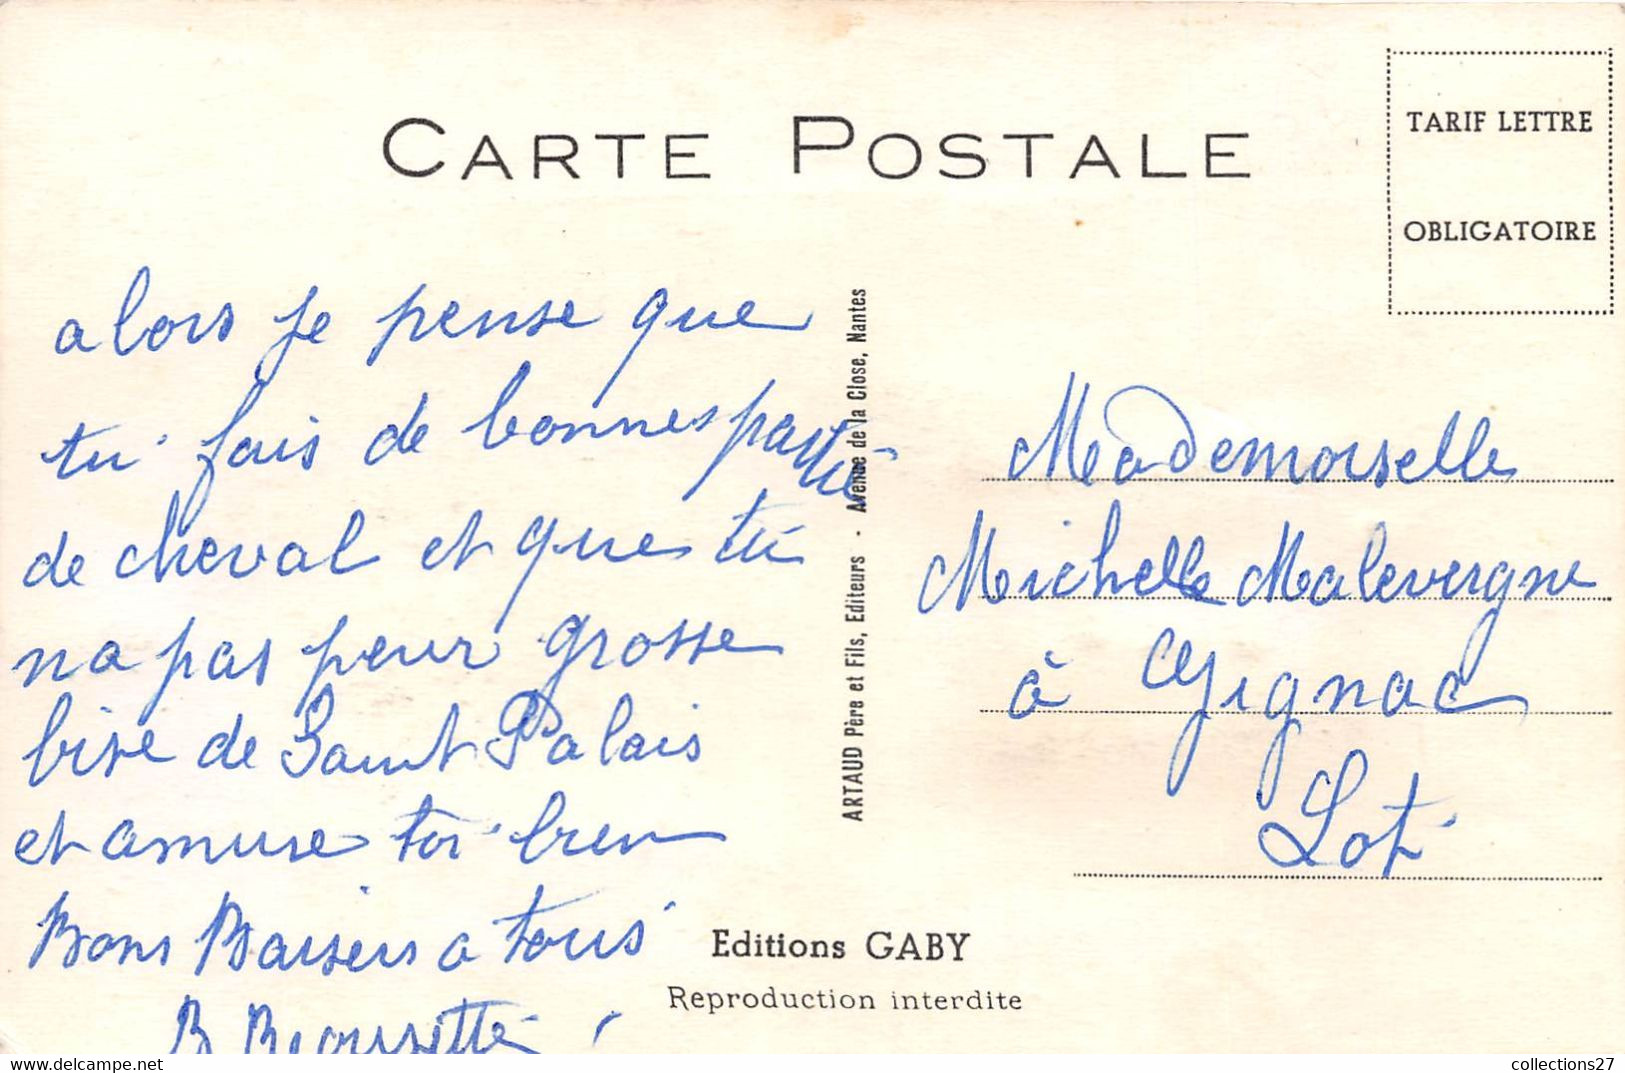 CARTE POSTALE
TARIF LETTRE
OBLIGATOIRE
alors je pense que
tu fais de bonnes partie
de cheval et que tu
na pas peur grosse
bise de Saint Palais
et amuse toi bien
Bons Baisers a tous
ARTAUD Père et Fils, Editeurs - Avenue de la Close, Nantes
Mademoiselle
Michelle Malevergne
à Gignac
Lot
Editions GABY
Reproduction interdite
collections27